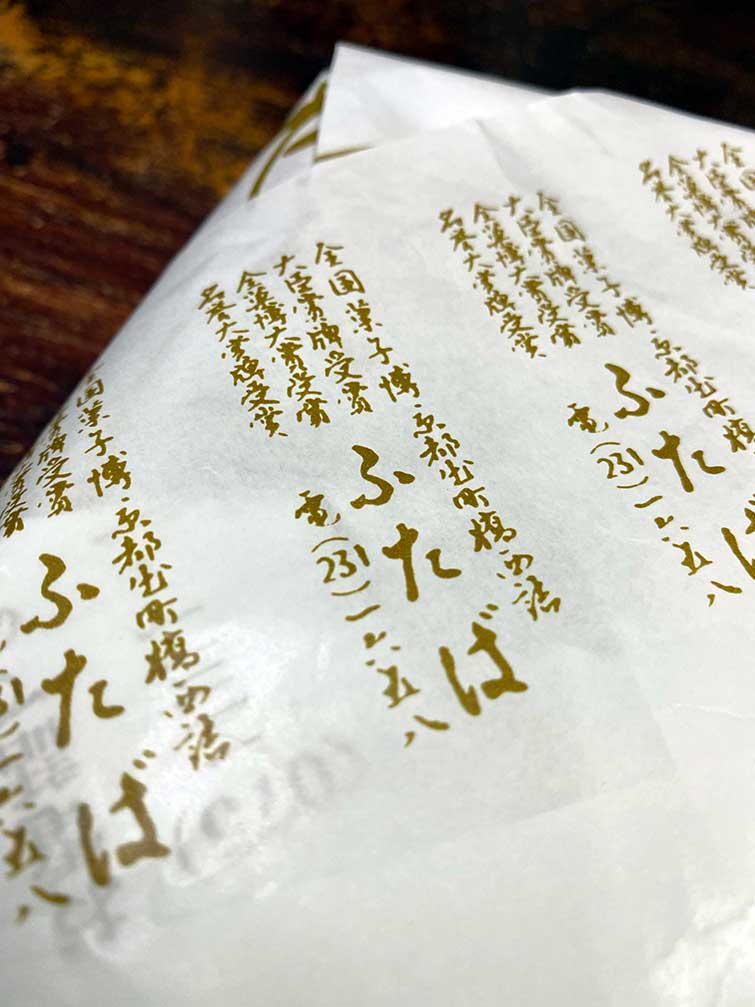 全国菓子博・
大臣賞牌受賞
全菓博大賞受賞
名誉大賞牌受賞
京都出町橋西詰
ふたば
電(231)一六五八
全国菓子博・
大臣賞牌受賞
全菓博大賞受賞
名誉大賞牌受賞
京都出町橋
ふたば
電(231)一六五八
国菓子博・
賞牌受賞
受賞
京都出町橋西詰
ふたば
一六五八
全菓博大賞
名誉大賞牌受賞